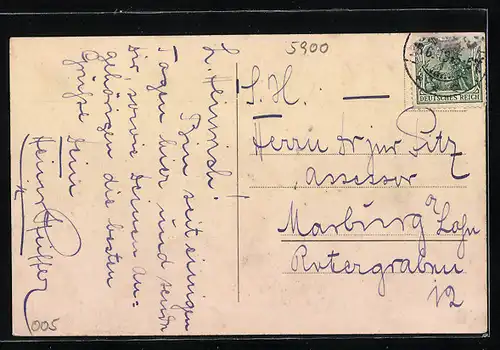 L. Heinrich!
Bin seit einigen
Tagen hier und sende
Dir, sowie Deinen An-
gehörigen die besten
Grüße
Dein
Heinr.
005
5900
S. H.
Herrn Dr jur Pitz
Assessor
Marburg a/Lahn
Rotergraben
12
DEUTSCHES REICH